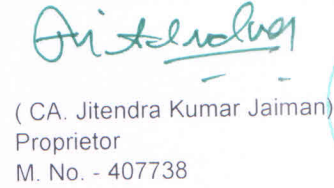 ( CA. Jitendra Kumar Jaiman)
Proprietor
M. No. - 407738